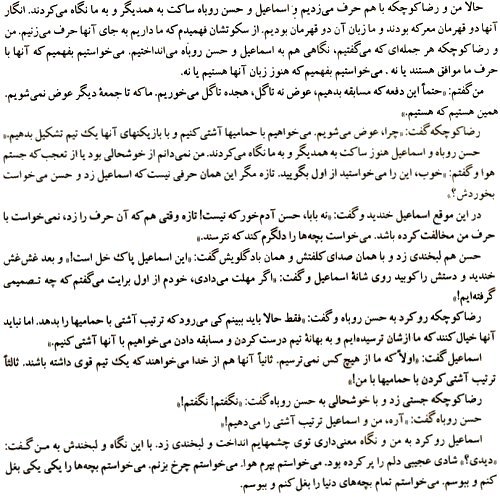 حالا من و رضا کوچکه با هم حرف می‌زدیم و اسماعیل و حسن روباه ساکت به همدیگر و به ما نگاه می‌کردند. انگار
آنها دو قهرمان معرکه بودند و ما زبان آن دو قهرمان بودیم. از سکوتشان فهمیدم که ما داریم به جای آنها حرف می‌زنیم. من
و رضا کوچکه هر جمله‌ای که می‌گفتیم، نگاهی هم به اسماعیل و حسن روباه می‌انداختیم. می‌خواستیم بفهمیم که آنها با
حرف ما موافق هستند یا نه . می‌خواستیم بفهمیم که هنوز زبان آنها هستیم یا نه.
من گفتم: «حتماً این دفعه که مسابقه بدهیم، عوض نه تاگل، هجده تاگل می‌خوریم. ما که تا جمعهٔ دیگر عوض نمی‌شویم.
همین هستیم که هستیم.»
رضا کوچکه گفت: «چرا، عوض می‌شویم. می‌خواهیم با حمامیها آشتی کنیم و با بازیکنهای آنها یک تیم تشکیل بدهیم.»
حسن روباه و اسماعیل هنوز ساکت به همدیگر و به ما نگاه می‌کردند. من نمی‌دانم از خوشحالی بود یا از تعجب که جستم
هوا و گفتم: «خوب، این را می‌خواستید از اول بگویید. تازه مگر این همان حرفی نیست که اسماعیل زد و حسن می‌خواست
بخوردش؟»
در این موقع اسماعیل خندید و گفت: «نه بابا، حسن آدم‌خور که نیست! تازه وقتی هم که آن حرف را زد، نمی‌خواست با
حرف من مخالفت کرده باشد. می‌خواست بچه‌ها را دلگرم کند که نترسند.»
حسن هم لبخندی زد و با همان صدای کلفتش و همان بادگلویش گفت: «این اسماعیل پاک خل است!» و بعد غش‌غش
خندید و دستش را کوبید روی شانهٔ اسماعیل و گفت: «اگر مهلت می‌دادی، خودم از اول برایت می‌گفتم که چه تصمیمی
گرفته‌ایم!»
رضا کوچکه رو کرد به حسن روباه و گفت: «فقط حالا باید ببینم کی می‌رود که ترتیب آشتی با حمامیها را بدهد. اما نباید
آنها خیال کنند که ما ازشان ترسیده‌ایم و به بهانهٔ تیم درست کردن و مسابقه دادن می‌خواهیم با آنها آشتی کنیم.»
اسماعیل گفت: «اولاً که ما از هیچ کس نمی‌ترسیم. ثانیاً آنها هم از خدا می‌خواهند که یک تیم قوی داشته باشند. ثالثاً
ترتیب آشتی کردن با حمامیها با من!»
رضا کوچکه جستی زد و با خوشحالی به حسن روباه گفت: «نگفتم! نگفتم!»
حسن روباه گفت: «آره، من و اسماعیل ترتیب آشتی را می‌دهیم!»
اسماعیل رو کرد به من و نگاه معنی‌داری توی چشمهایم انداخت و لبخندی زد. با این نگاه و لبخندش به من گفت:
«دیدی؟» شادی عجیبی دلم را پر کرده بود. می‌خواستم بپرم هوا. می‌خواستم چرخ بزنم. می‌خواستم بچه‌ها را یکی یکی بغل
کنم و ببوسم. می‌خواستم تمام بچه‌های دنیا را بغل کنم و ببوسم.